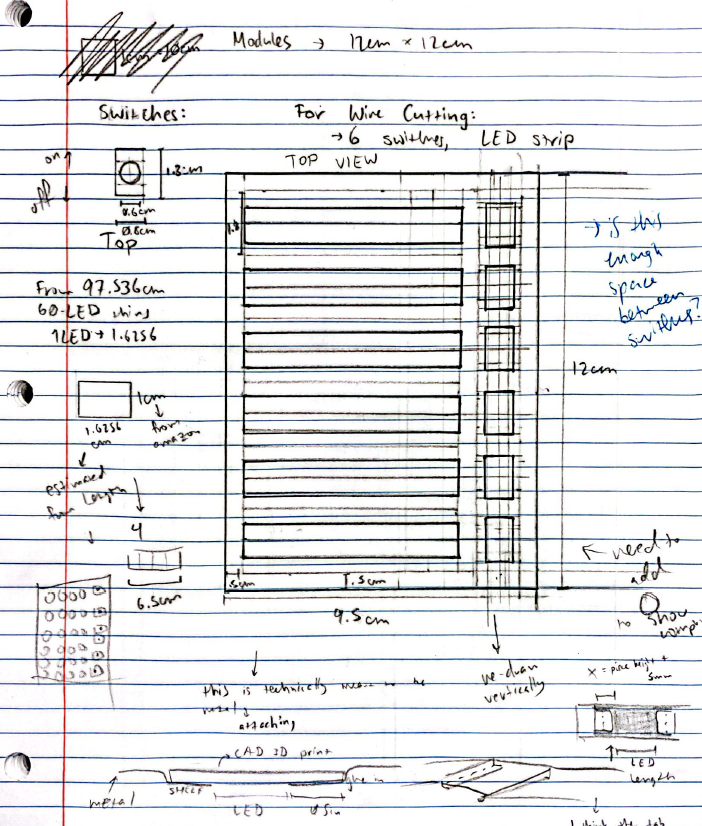 Modules → 12cm × 12cm
Switches:
For Wire Cutting:
→ 6 switches, LED strip
TOP VIEW
on
off
1.3cm
0.6cm
0.8cm
Top
From 97.536cm
60 LED strips
1 LED → 1.6256
1cm
1.6256
cm
from
amazon
estimated
from length
4
6.5cm
1.8
→ is this
enough
space
between
switches?
12cm
.5cm
7.5cm
9.5cm
← need to
add
to show
re-draw
vertically
this is technically
metal
attaching
CAD 3D print
glue in
metal
SHELF
LED
x =
5mm
LED
length